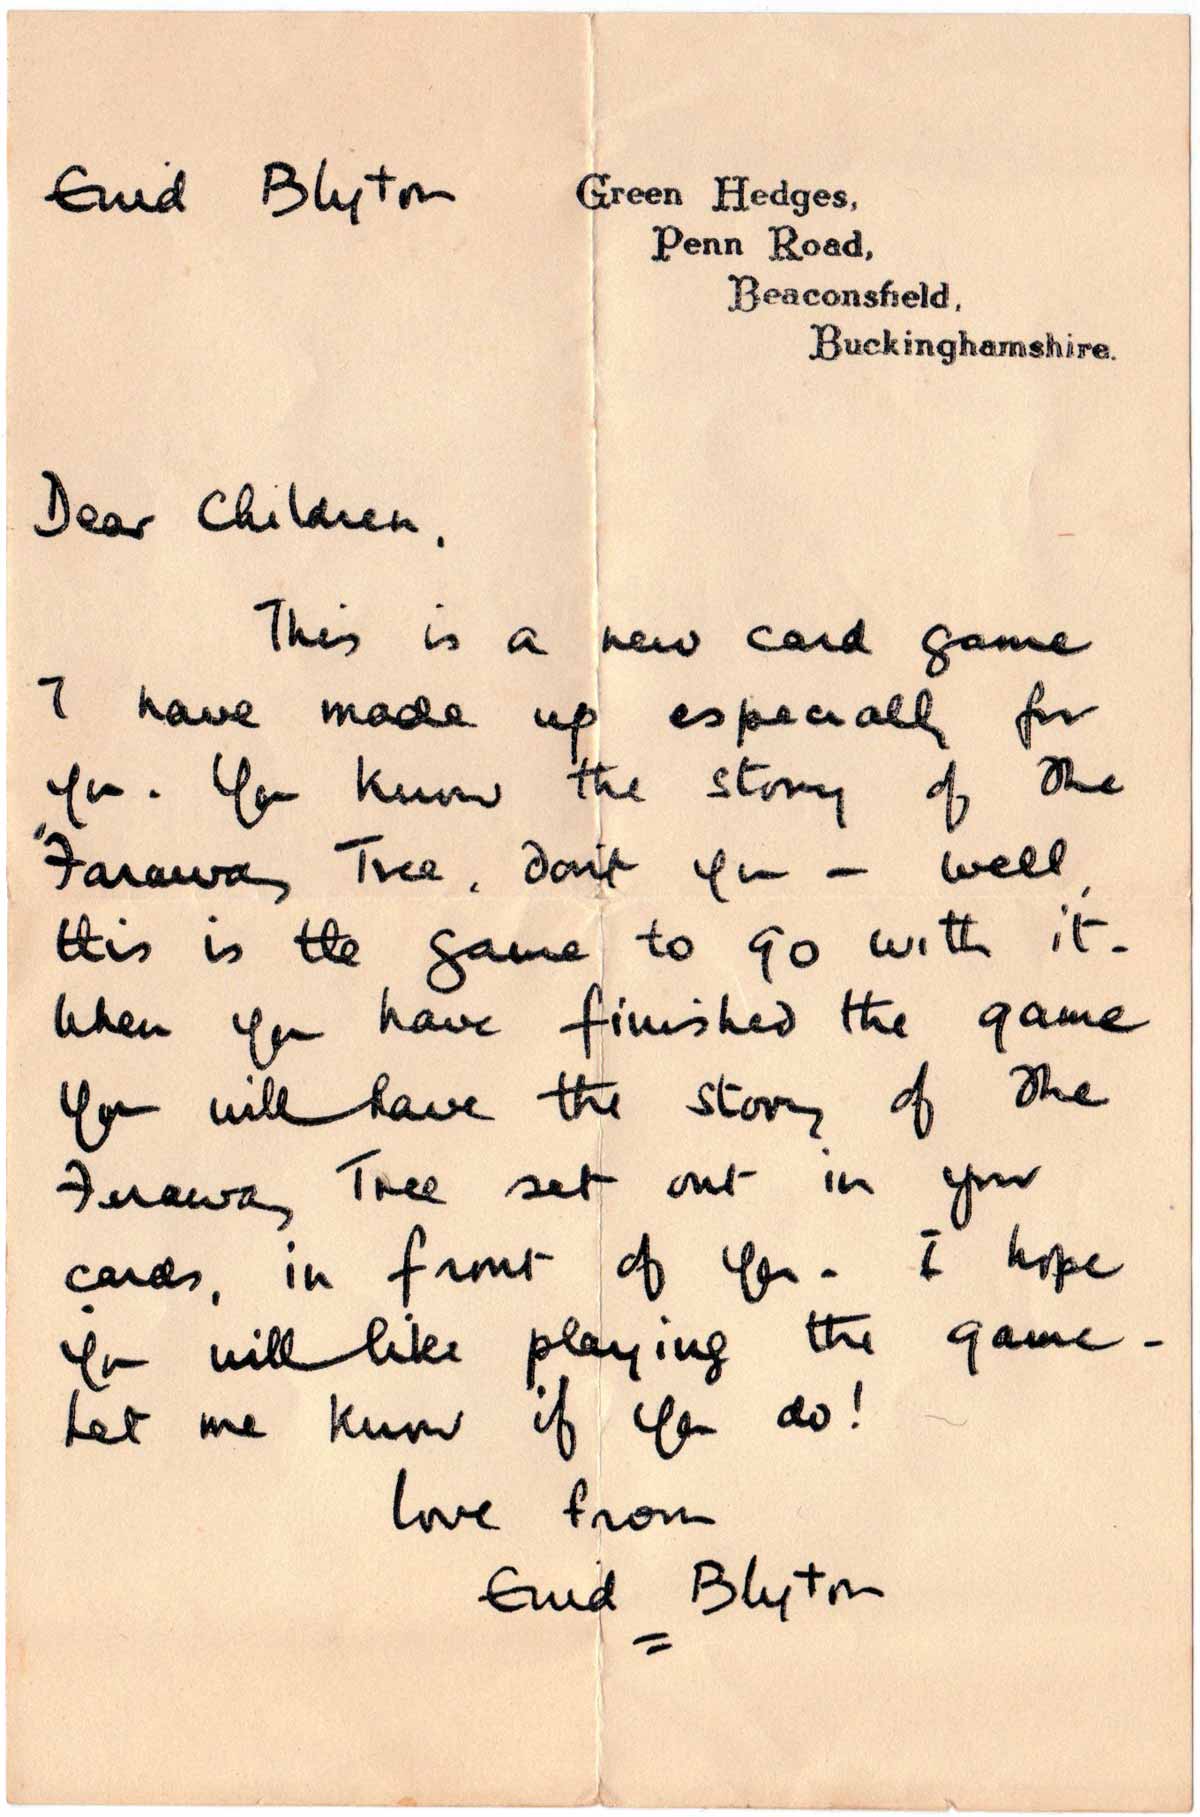 Enid Blyton
Green Hedges,
Penn Road,
Beaconsfield,
Buckinghamshire.
Dear Children,
This is a new card game
I have made up especially for
you. You know the story of the
"Faraway Tree, don't you — well,
this is the game to go with it.
When you have finished the game
you will have the story of the
Faraway Tree set out in your
cards, in front of you. I hope
you will like playing the game.
Let me know if you do!
Love from
Enid Blyton